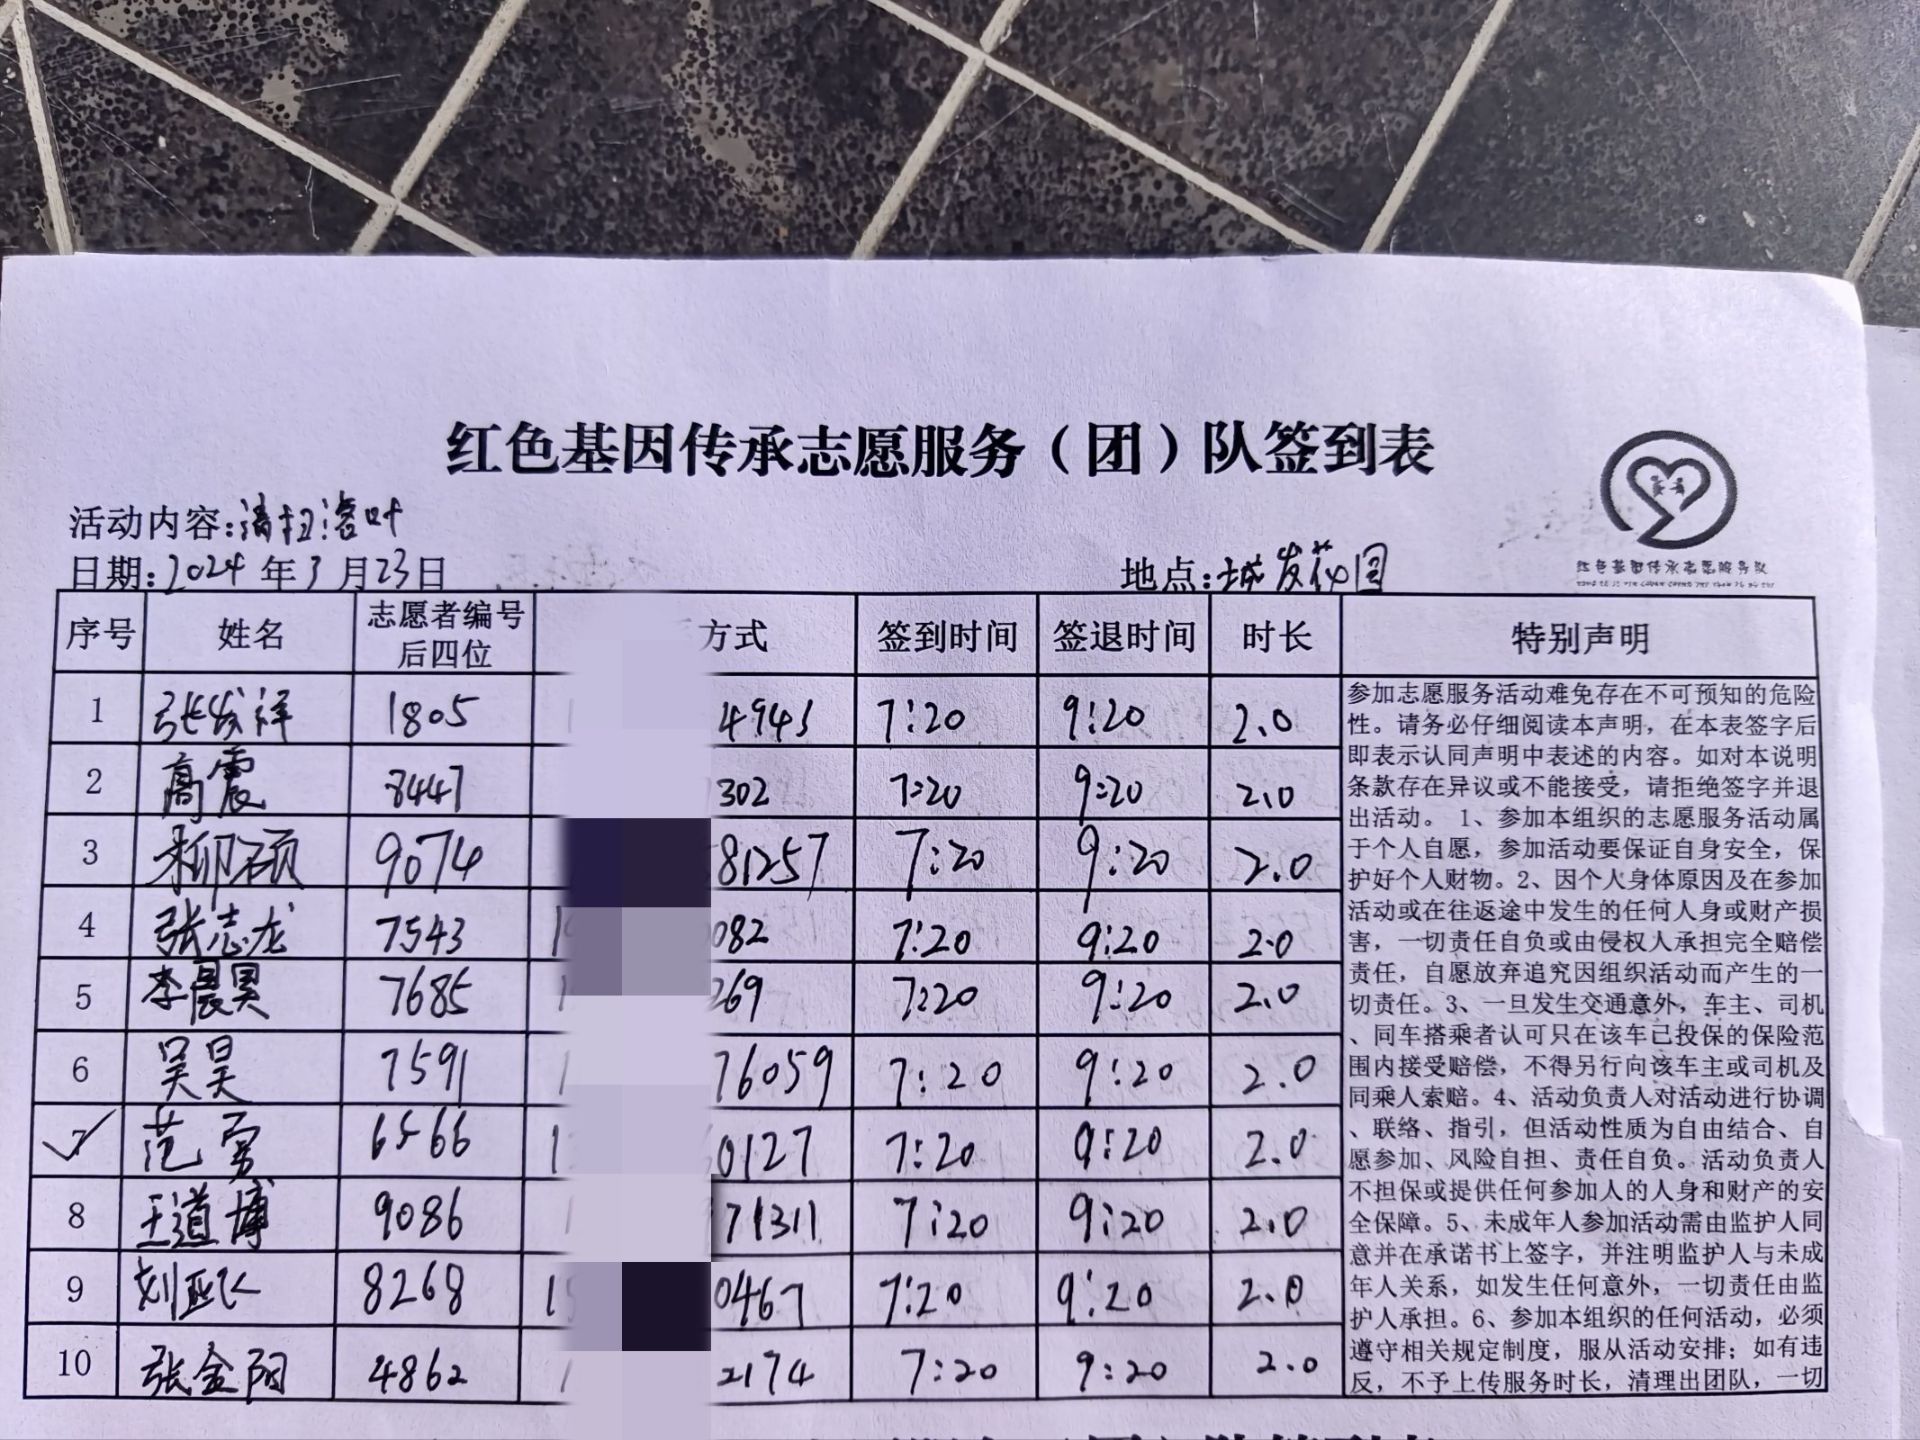 红色基因传承志愿服务（团）队签到表
红色基因传承志愿服务队
活动内容:清扫落叶
日期:2024年3月23日 地点:城发花园
序号 姓名 志愿者编号后四位 方式 签到时间 签退时间 时长 特别声明
1 张发祥 1805 4943 7:20 9:20 2.0
2 高震 8447 302 7:20 9:20 2.0
3 柳硕 9074 81257 7:20 9:20 2.0
4 张志龙 7543 082 7:20 9:20 2.0
5 李晨昊 7685 269 7:20 9:20 2.0
6 吴昊 7591 76059 7:20 9:20 2.0
7 范勇 6566 0127 7:20 9:20 2.0
8 王道博 9086 71311 7:20 9:20 2.0
9 刘亚 8268 0467 7:20 9:20 2.0
10 张金阳 4862 2174 7:20 9:20 2.0
参加志愿服务活动难免存在不可预知的危险
性。请务必仔细阅读本声明，在本表签字后
即表示认同声明中表述的内容。如对本说明
条款存在异议或不能接受，请拒绝签字并退
出活动。 1、参加本组织的志愿服务活动属
于个人自愿，参加活动要保证自身安全，保
护好个人财物。2、因个人身体原因及在参加
活动或在往返途中发生的任何人身或财产损
害，一切责任自负或由侵权人承担完全赔偿
责任，自愿放弃追究因组织活动而产生的一
切责任。3、一旦发生交通意外，车主、司机
、同车搭乘者认可只在该车已投保的保险范
围内接受赔偿，不得另行向该车主或司机及
同乘人索赔。4、活动负责人对活动进行协调
、联络、指引，但活动性质为自由结合、自
愿参加、风险自担、责任自负。活动负责人
不担保或提供任何参加人的人身和财产的安
全保障。5、未成年人参加活动需由监护人同
意并在承诺书上签字，并注明监护人与未成
年人关系，如发生任何意外，一切责任由监
护人承担。6、参加本组织的任何活动，必须
遵守相关规定制度，服从活动安排；如有违
反，不予上传服务时长，清理出团队，一切